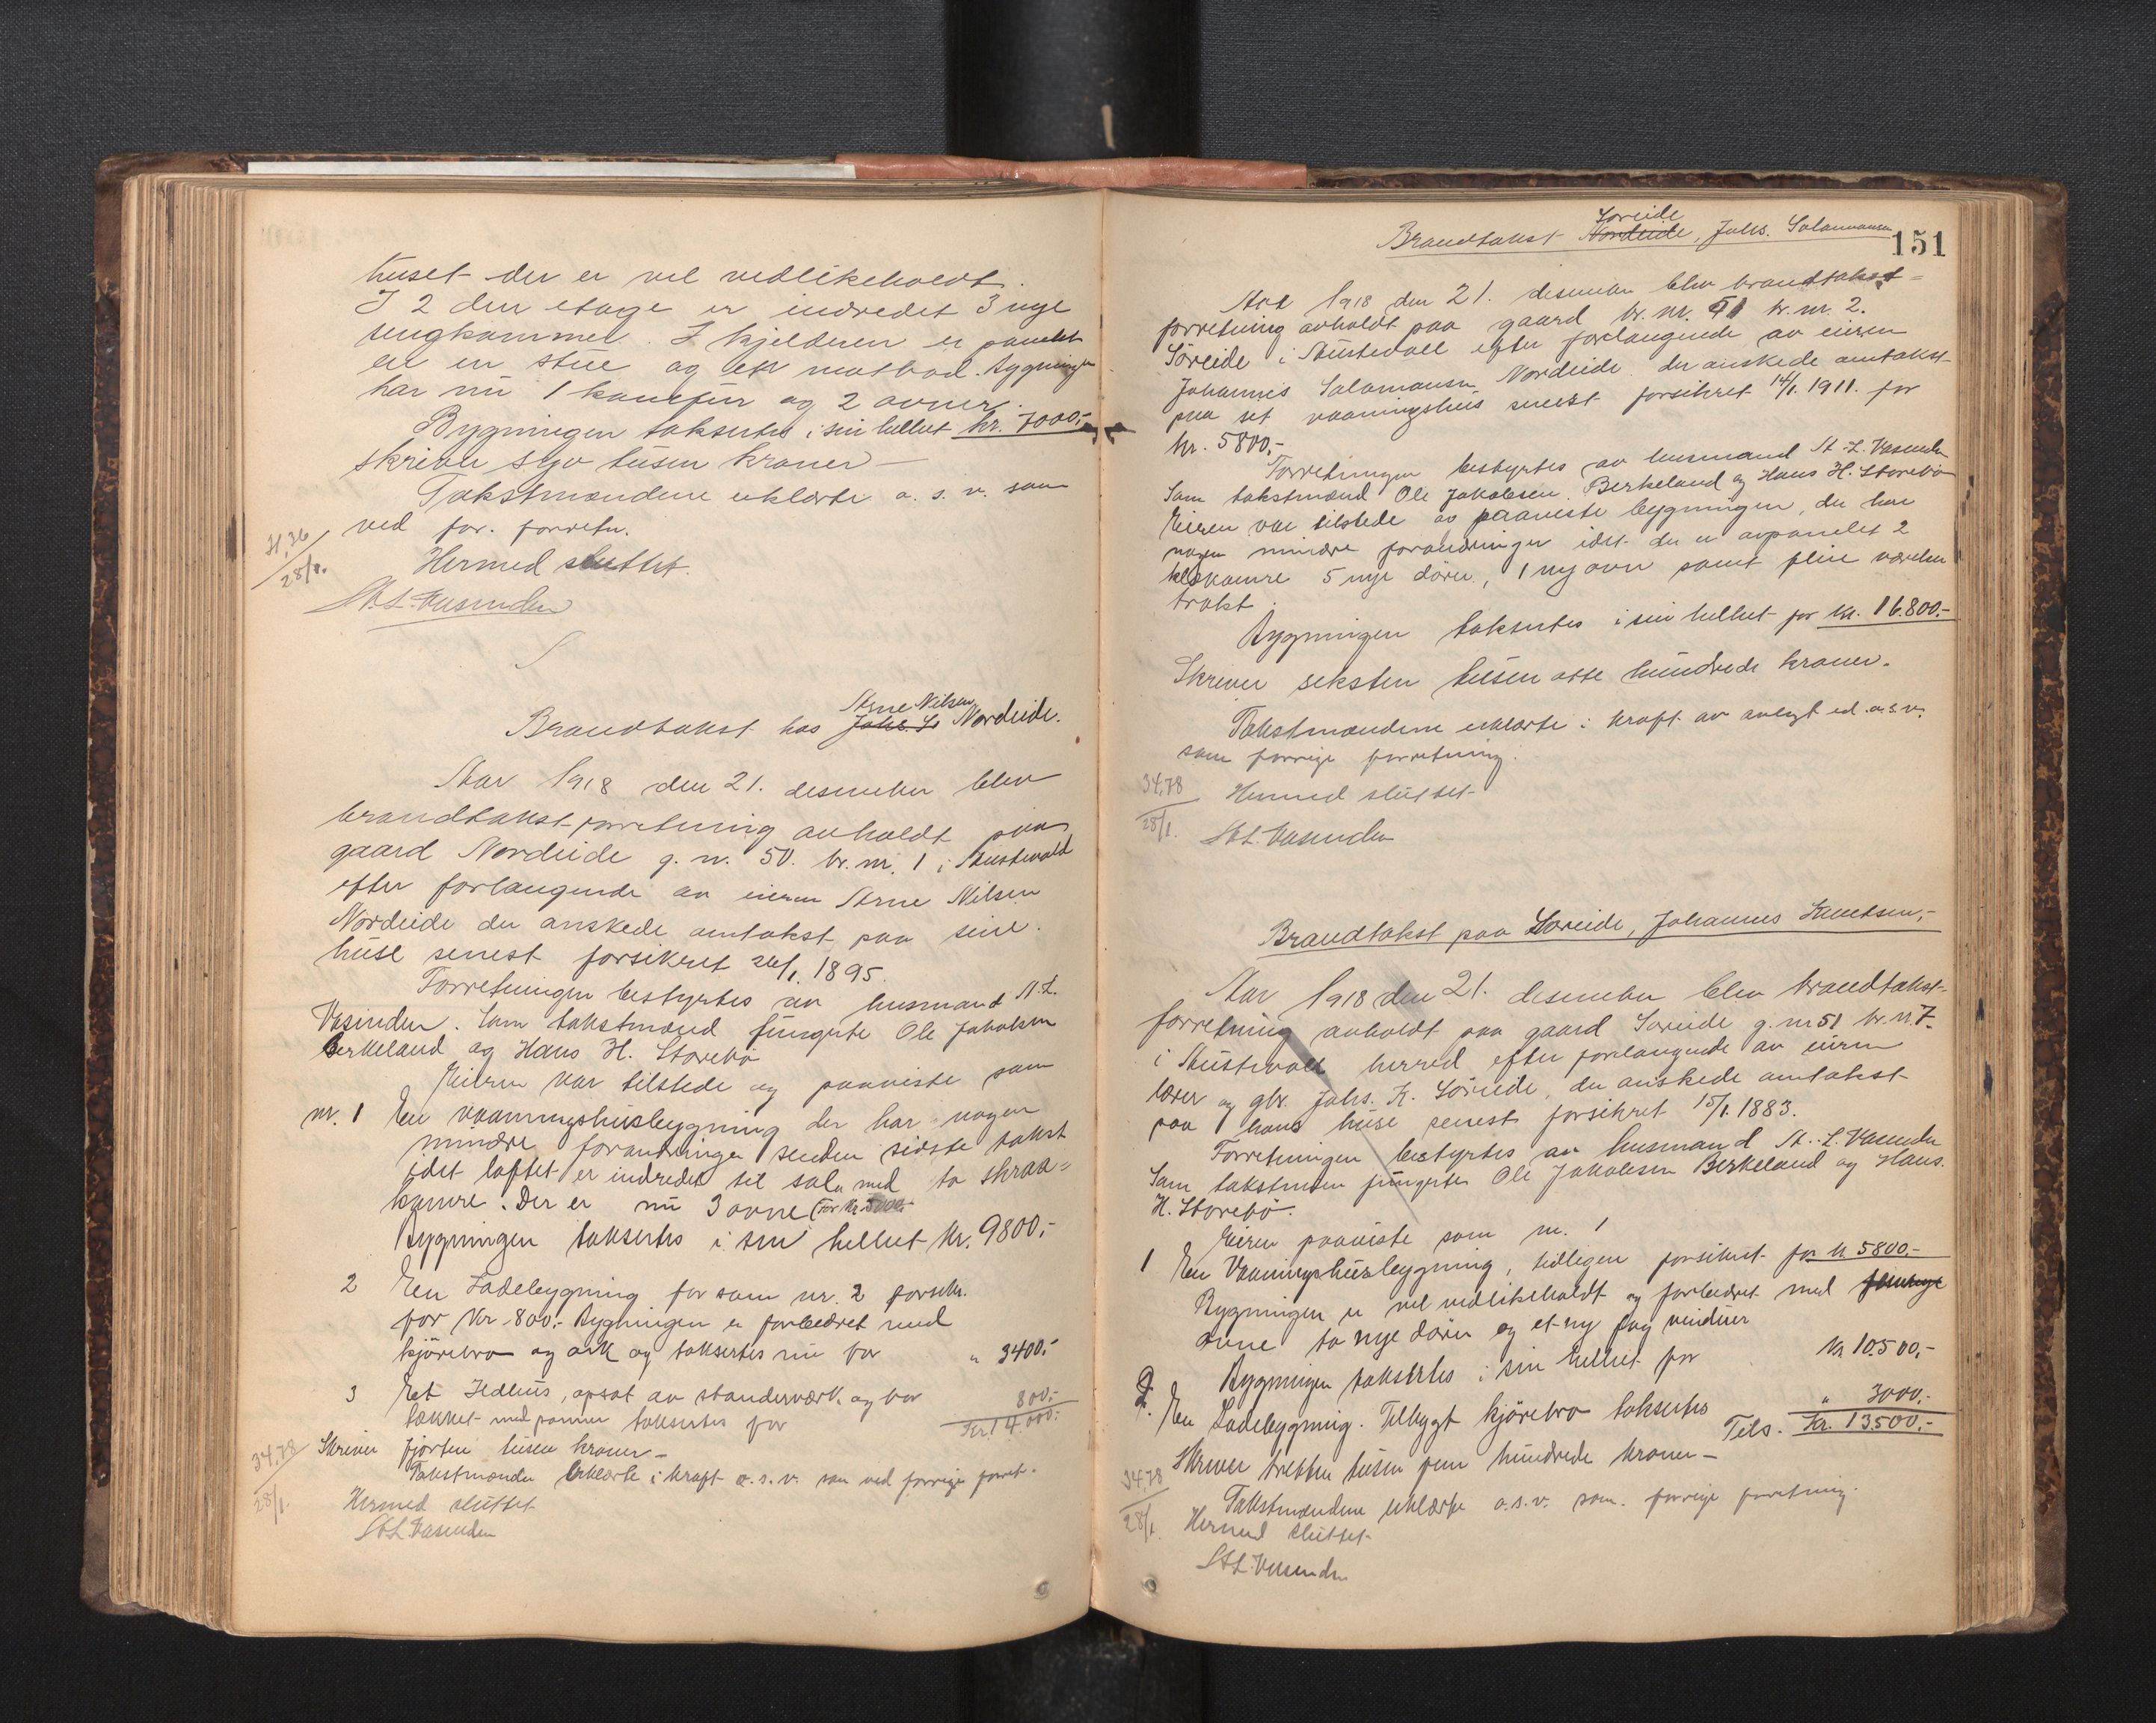 huset der er vel vedlikeholdt.
I 2 den etage er indredet 3 nye
sengkammer. I kjelderen er panelt
en stue og en matbod. Bygningen
har nu 1 komfur og 2 ovner.
Bygningen taksertes i sin helhet kr. 7000.-
skriver syv tusen kroner —
Takstmændene erklærte o. s. v. som
ved for. forretn.
Hermed sluttet.
28/1.
A. L. Vasenden
Arne Nilsen
Brandtakst hos Johs. S. Nordeide.
Aar 1918 den 21. desember blev
brandtakst-forretning avholdt paa
gaard Nordeide g. nr. 50. br. nr. 1 i Austevold
efter forlangende av eieren Arne Nilsen
Nordeide der ønskede omtakst paa sine
huse senest forsikret 26/1. 1895.
Forretningen bestyrtes av lensmand A. L.
Vasenden. Som takstmænd fungerte Ole Jakobsen
Berkeland og Hans H. Storebø
Eieren var tilstede og paaviste som
nr. 1 En vaaningshusbygning der har nogen
mindre forandringer senden sidste takst
idet loftet er indredet til sale med to skraa-
kamre. Der er nu 3 ovne (For kr. 5000.-
Bygningen taksertes i sin helhet kr. 9800.-
2 En Ladebygning før som nr. 2 forsikr.
for kr 800.- Bygningen er forbedret med
kjørebro og ark og taksertes nu for " 3400.-
3 Et Ildhus, opsat av standerværk og
tækket med panner taksertes for 800.-
Kr. 14000.-
Skriver fjorten tusen kroner —
Takstmænde erklærte i kraft o. s. v. som ved forrige forret.
34,78
28/1.
Hermed sluttet
A. L. Vasenden
151
Søreide
Brandtakst Nordeide, Johs. Salamonsen
Aar 1918 den 21. desember blev brandtakst-
forretning avholdt paa gaard br. nr. 51 br. nr. 2.
Søreide i Austevoll efter forlangende av eieren
Johannes Salamonsen Nordeide der ønskede omtakst
paa set vaaningshus senest forsikret 14/1. 1911. for
kr. 5800.-
Forretningen bestyrtes av lensmand A. L. Vasenden
Som takstmænd Ole Jakobsen Berkeland og Hans H. Storebø
Eieren var tilstede og paaviste bygningen, der har
nogen mindre forandringer idet der er avpanelet 2
kleskamre 5 nye dører, 1 ny ovn samt flere værelser
trakt.
Bygningen taksertes i sin helhet for kr. 16.800.-
Skriver seksten tusen otte hundrede kroner.
Takstmændene erklærte i kraft av avlagt ed o. s. v.
som forrige forretning.
34,78
28/1.
Hermed sluttet
A. L. Vasenden
Brandtakst paa Søreide, Johannes Knutsen.-
Aar 1918 den 21. desember blev brandtakst-
forretning avholdt paa gaard Søreide g. nr 51 br. nr. 7.
i Austevoll herred efter forlangende av eieren
lærer og gbr. Johs. K. Søreide, der ønskede omtakst
paa hans huse senest forsikret 15/1. 1883.
Forretningen bestyrtes av lensmand A. L. Vasenden
Som takstmen fungerte Ole Jakobsen Berkeland og Hans.
H. Storebø.
Eieren paaviste som nr. 1
1 En Vaaningshusbygning, tidligere forsikret for kr 5800.-
Bygningen er vel vedlikeholdt og forbedret med
ovne to nye dører og et ny fag vinduer
Bygningen taksertes i sin helhet for kr 10.500.-
2. En Ladebygning. Tilbygt kjørebro taksertes " 3000.-
Tils. kr. 13500.-
Skriver tretten tusen fem hundrede kroner —
Takstmændene erklærte o. s. v. som. forrige forretning.
34,78
28/1.
Hermed sluttet
A. L. Vasenden